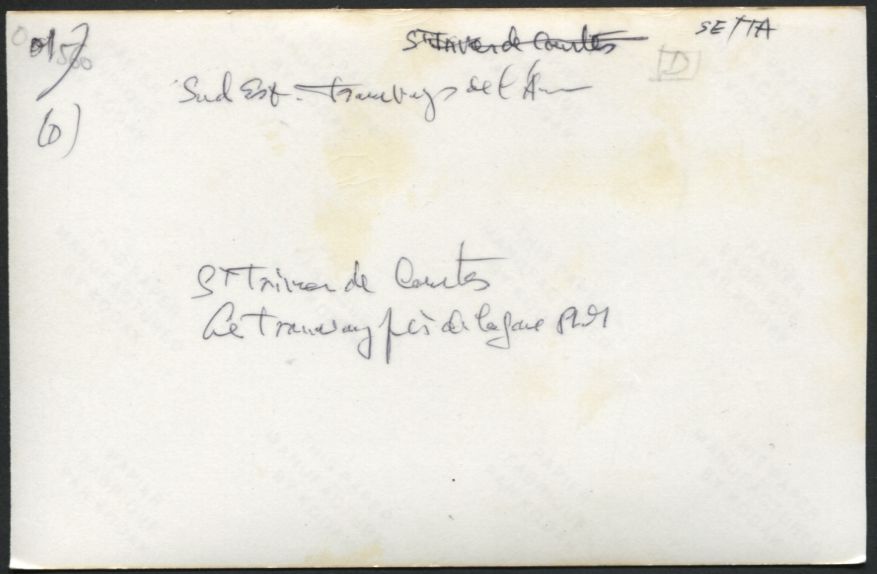 01500
St Trivier de Courtes
SETTA
D
Sud Est. Tramways de l'Ain
(D)
St Trivier de Courtes
Le Tramway près de la gare PLM